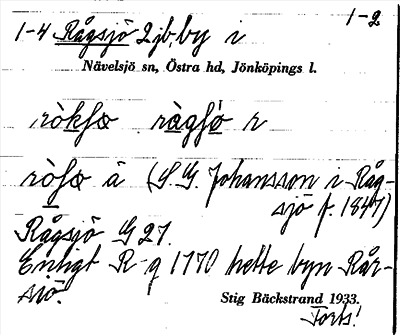 1-2
1-4 Rågsjö 2 jb, by i
Nävelsjö sn, Östra hd, Jönköpings l.
r
å (S. G. Johansson i Råg-
sjö f. 1847)
Rågsjö G 27.
Enligt R-q 1770 hette byn Rår-
sjö.
Stig Bäckstrand 1933.
Forts!